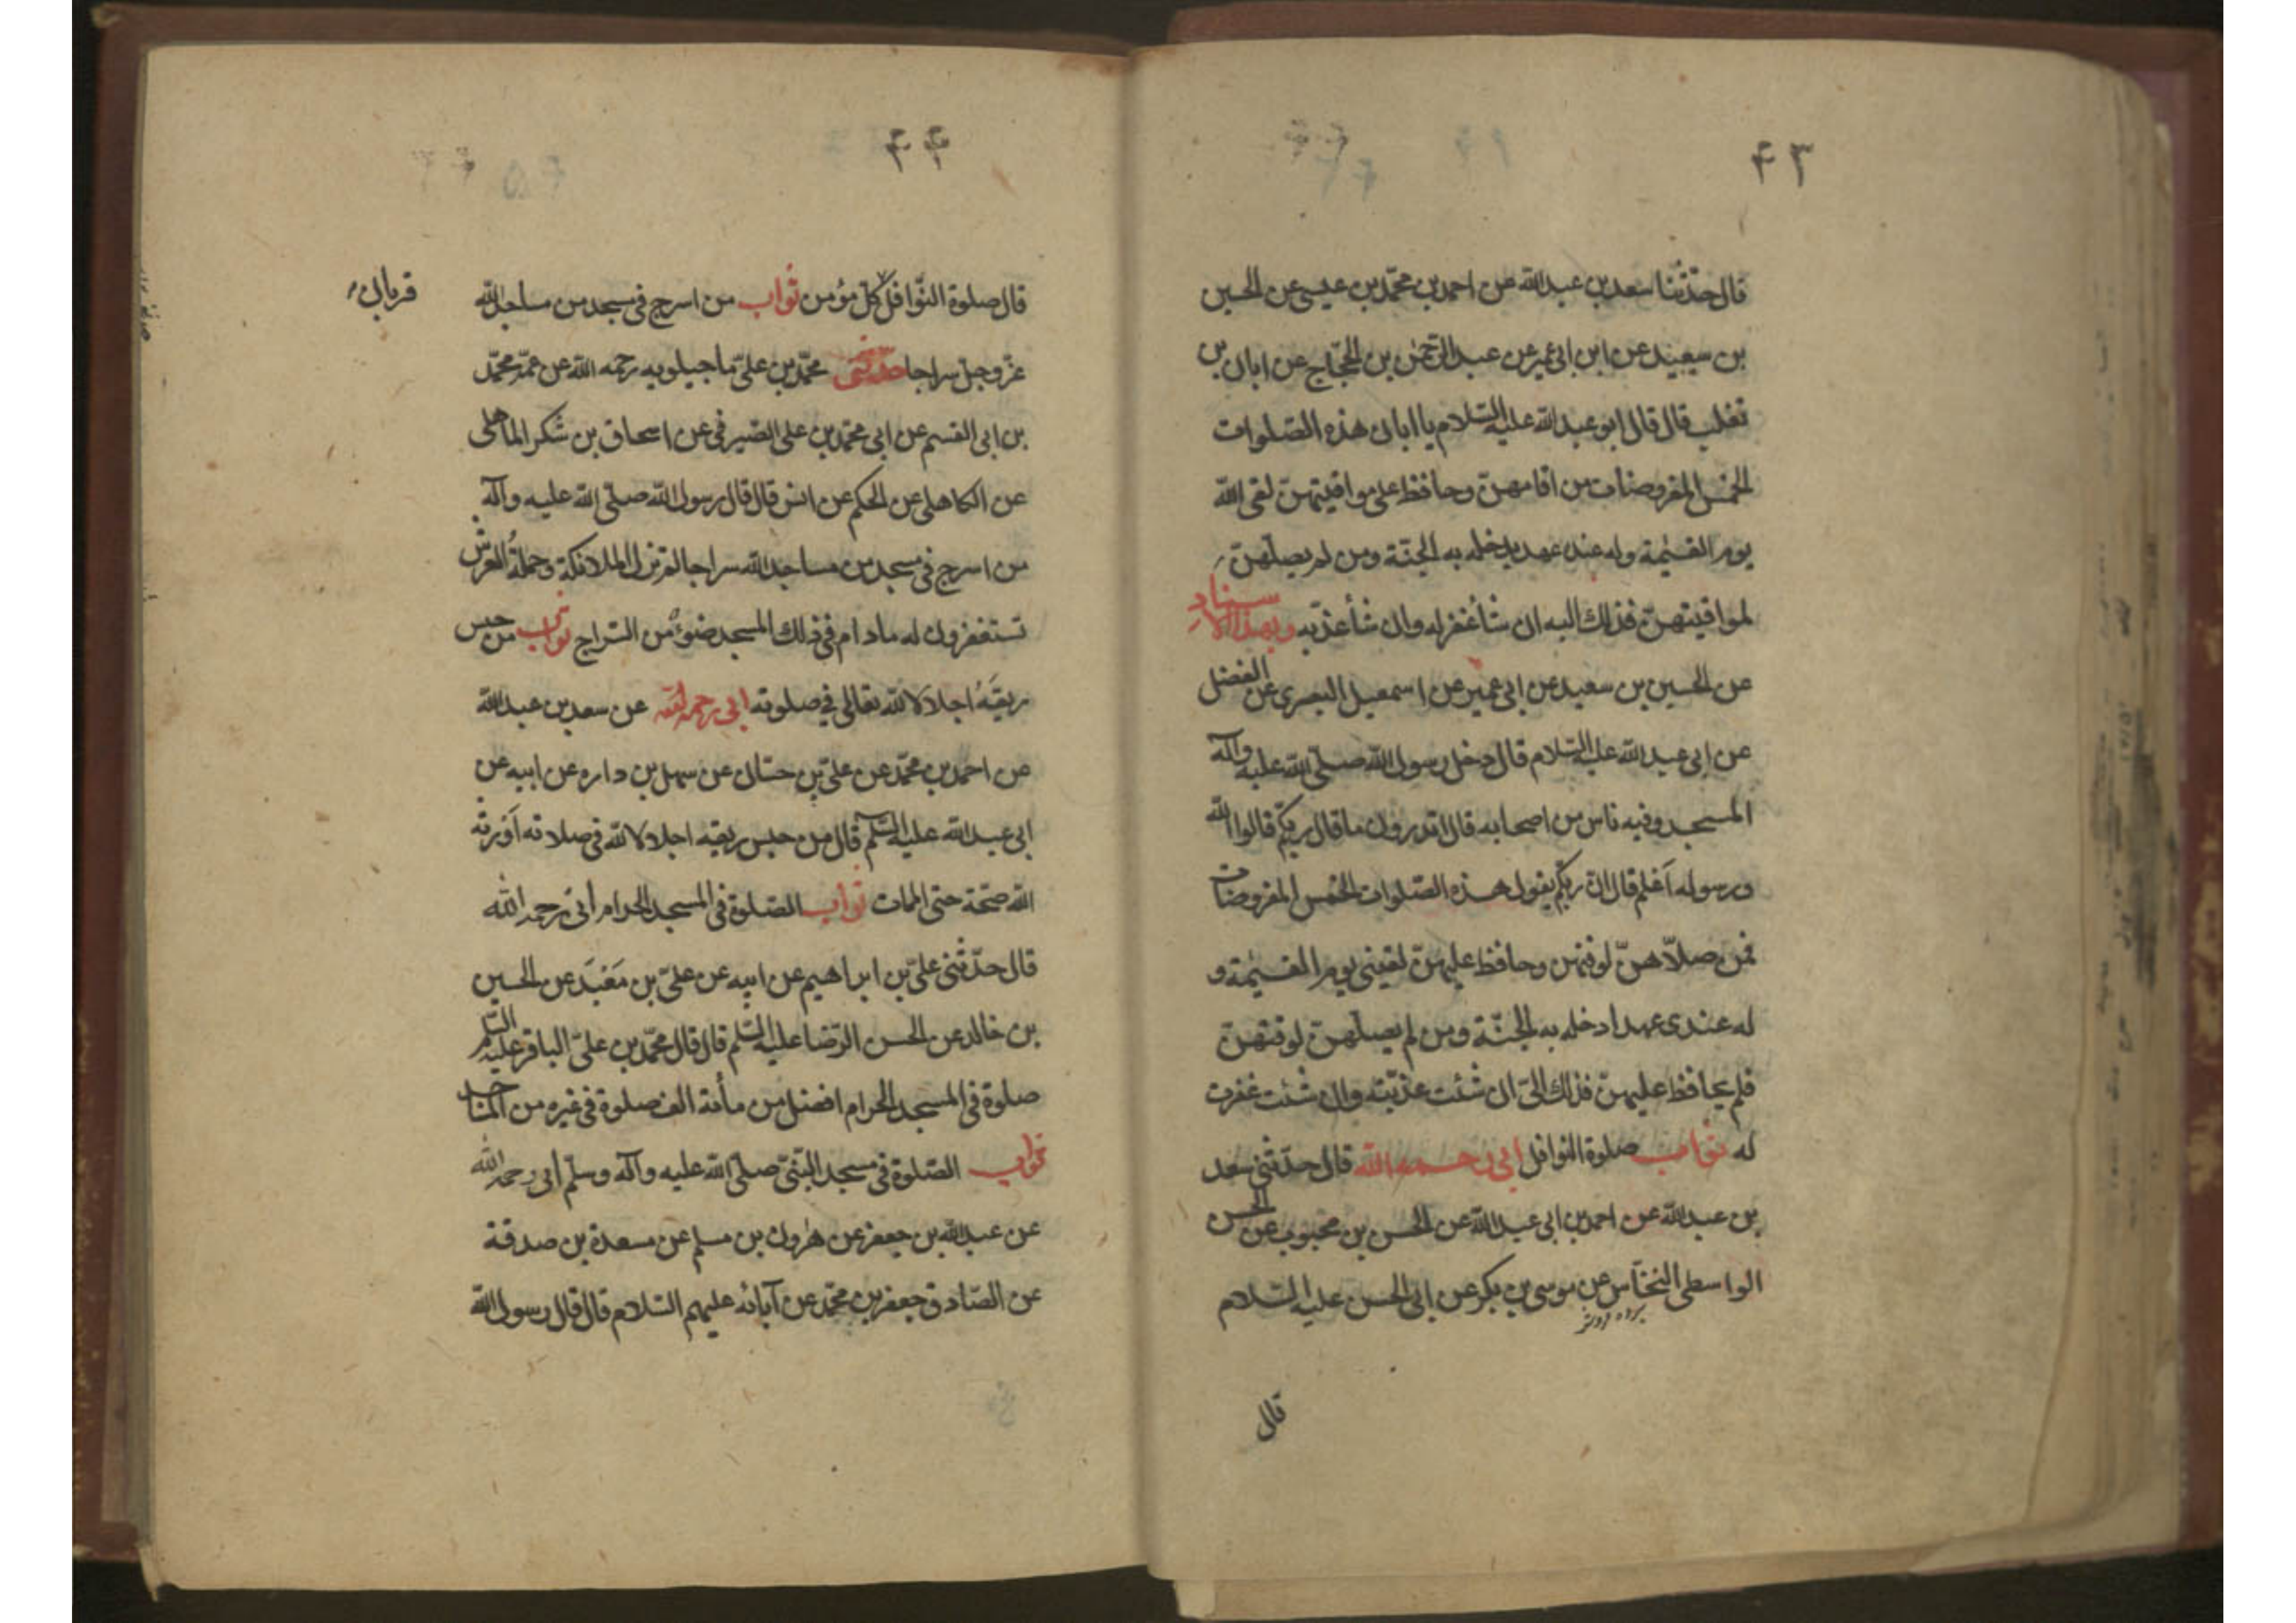 ۴۳
قال حدّثنا سعد بن عبد الله عن احمد بن محمّد بن عيسى عن الحسين
بن سعيد عن ابن ابى عمير عن عبد الرّحمن بن الحجّاج عن ابان بن
تغلب قال قال ابو عبد الله عليه السّلام يا ابان هذه الصّلوات
الخمس المفروضات من اقامهنّ وحافظ على مواقيتهنّ لقى الله
يوم القيٰمة وله عنده عهد يدخله به الجنّة ومن لم يصلّهنّ
لمواقيتهنّ فذلك اليه ان شاء غفر له وان شاء عذّبه وبهذا الاسناد
عن الحسين بن سعيد عن ابى عمير عن اسمعيل البصرى عن الفضل
عن ابى عبد الله عليه السّلام قال دخل رسول الله صلّى الله عليه وآله
المسجد وفيه ناس من اصحابه قال اتدرون ما قال ربّكم قالوا الله
ورسوله اَعلم قال انّ ربّكم يقول هذه الصّلوات الخمس المفروضات
فمن صلّاهنّ لوقتهن وحافظ عليهنّ لقينى يوم القيٰمة و
له عندى عهد ادخله به الجنّة ومن لم يصلّهنّ لوقتهنّ
فلم يحافظ عليهنّ فذلك الىّ ان شئت عذّبته وان شئت غفرت
له ثواب صلوة النوافل ابى رحمه الله قال حدّثنى سعد
بن عبد الله عن احمد بن ابى عبد الله عن الحسن بن محبوب عن الحسن
الواسطى النخّاس عن موسى بن بكر عن ابى الحسن عليه السّلام
برده فروش
قال
۴۴
قال صلوة النّوافل كلّ مؤمن ثواب من اسرج فى مسجد من مساجد الله
قربان
عزّ وجلّ سراجا حدّثنى محمّد بن علىّ ماجيلويه رحمه الله عن عمّه محمّد
بن ابى القسم عن ابى محمّد بن على الصّيرفى عن اسحاق بن شكر الماهلى
عن الكاهلى عن الحكم عن انس قال قال رسول الله صلّى الله عليه وآله
من اسرج فى مسجد من مساجد الله سراجا لم تزل الملائكة وحملةُ العرش
تستغفرون له مادام فى ذلك المسجد ضوءٌ من السّراج ثواب من حبس
ريقَهُ اجلالا لله تعالى فى صلوته ابى رحمه الله عن سعد بن عبد الله
عن احمد بن محمّد عن علىّ بن حسّان عن سهل بن داره عن ابيه عن
ابى عبد الله عليه السّلم قال من حبس ريقه اجلالا لله فى صلاته اَوْرثه
الله صحّة حتى الممات ثواب الصّلوة فى المسجد الحرام أبى رحمه الله
قال حدّثنى علىّ بن ابراهيم عن ابيه عن علىّ بن مَعْبَد عن الحسين
بن خالد عن الحسن الرّضا عليه السّلم قال قال محمّد بن علىّ الباقر عليه السّلم
صلوة فى المسجد الحرام افضل من مأئة الف صلوة فى غيره من المساجد
ثواب الصّلوة فى مسجد النبىّ صلّى الله عليه وآله وسلّم أبى رحمه الله
عن عبد الله بن جعفر عن هٰرون بن مسلم عن مسعدة بن صدقة
عن الصّادق جعفر بن محمّد عن آبائه عليهم السّلام قال قال رسول الله